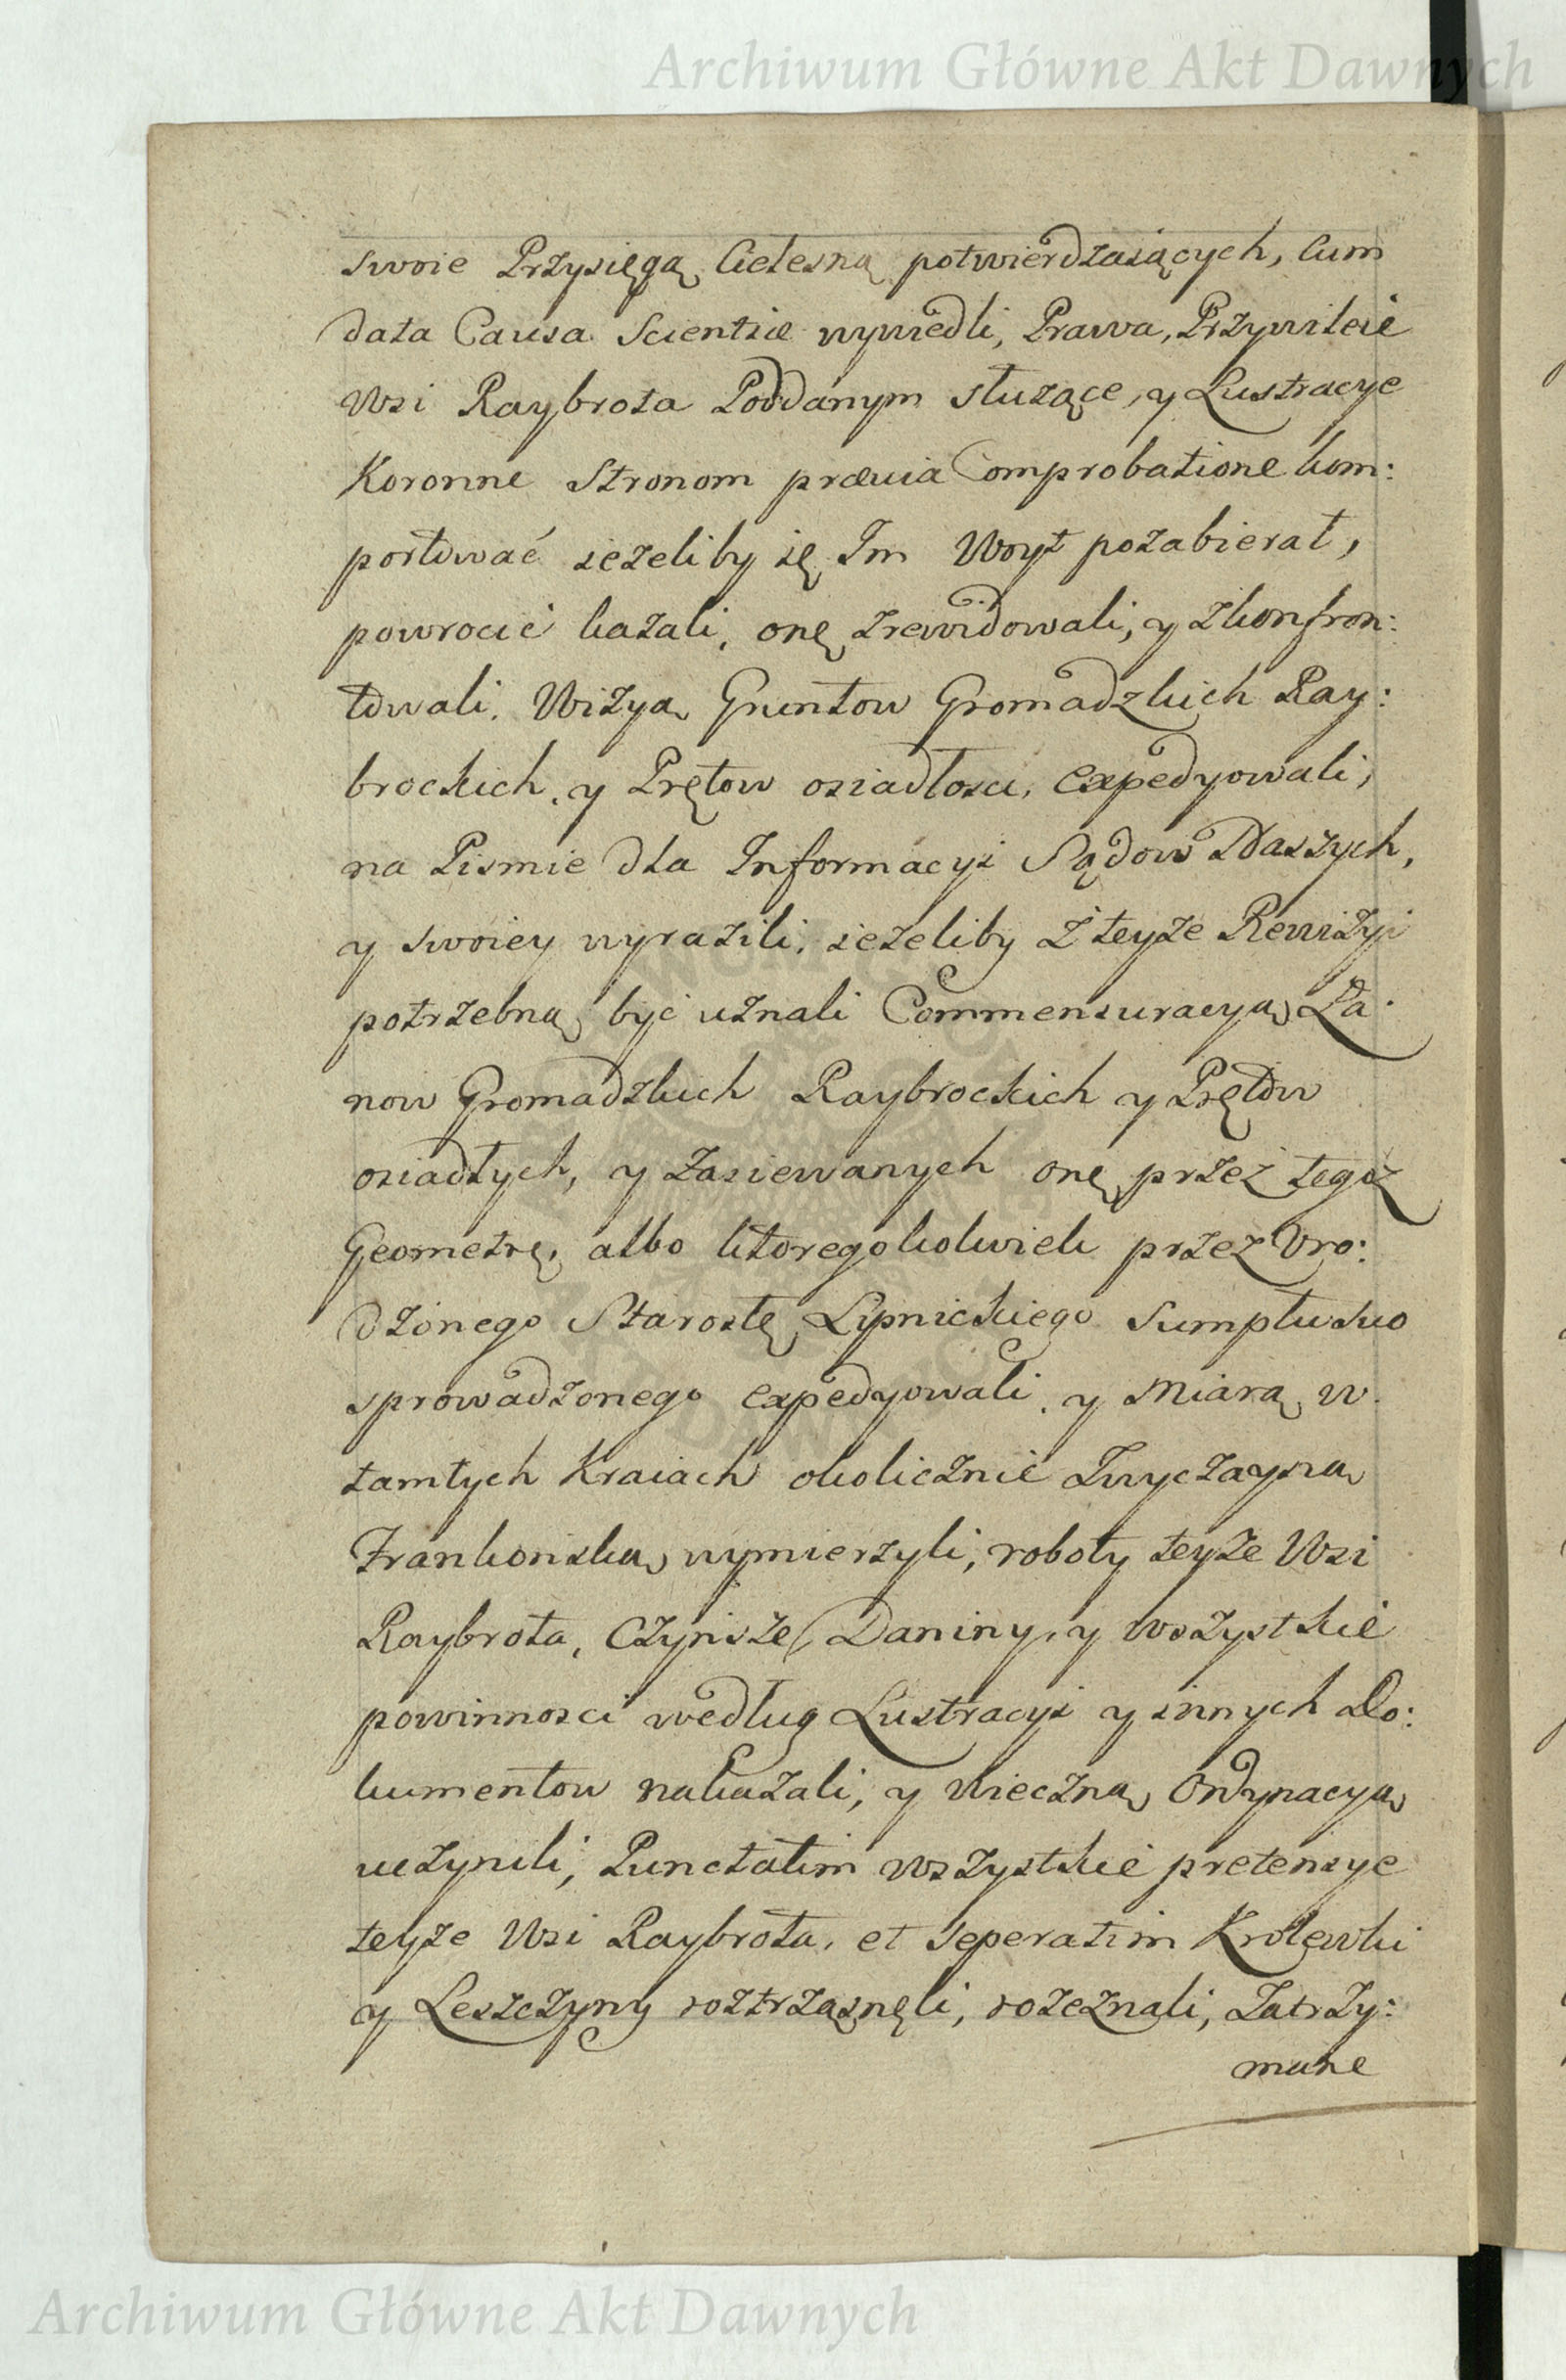 Archiwum Główne Akt Dawnych
swoie Przysięgą Cielesną potwierdzaiących, Cum
data Causa Scientiæ wywiedli, Prawa, Przywileie
Wsi Raybrota Poddanym służące, y Lustracye
Koronne Stronom prævia Comprobatione kom:
portować ieżeliby ię Im Woyt pozabierał,
powrocić kazali, onę zrewidowali, y zkonfron:
towali. Wizyą Gruntow Gromadzkich Ray:
brockich, y Prętow osiadłosci, expedyowali,
na Pismie dla Informacyi Sądow Naszych,
y swoiey wyrazili, ieżeliby z teyże Rewizyi
potrzebną być uznali Commensuracyą Ła:
now Gromadzkich Raybrockich y Prętow
osiadłych, y zasiewanych onę przez tegoż
Geometrę, albo ktoregokolwiek przez Uro:
dzonego Starostę Lipnickiego Sumptu suo
sprowadzonego expedyowali, y Miarą w
tamtych Kraiach okolicznie Zwyczayną
Frankońską wymierzyli, roboty teyże Wsi
Raybrota, Czynsze, Daniny, y wszystkie
powinnosci według Lustracyi y innych Do:
kumentow nakazali, y wieczną Ordynacyą
uczynili, Punctatim wszystkie pretensye
teyże Wsi Raybrota, et seperatim Krolewki
y Leszczyny roztrząsnęli, rozeznali, Zatrzy:
mane
Archiwum Główne Akt Dawnych